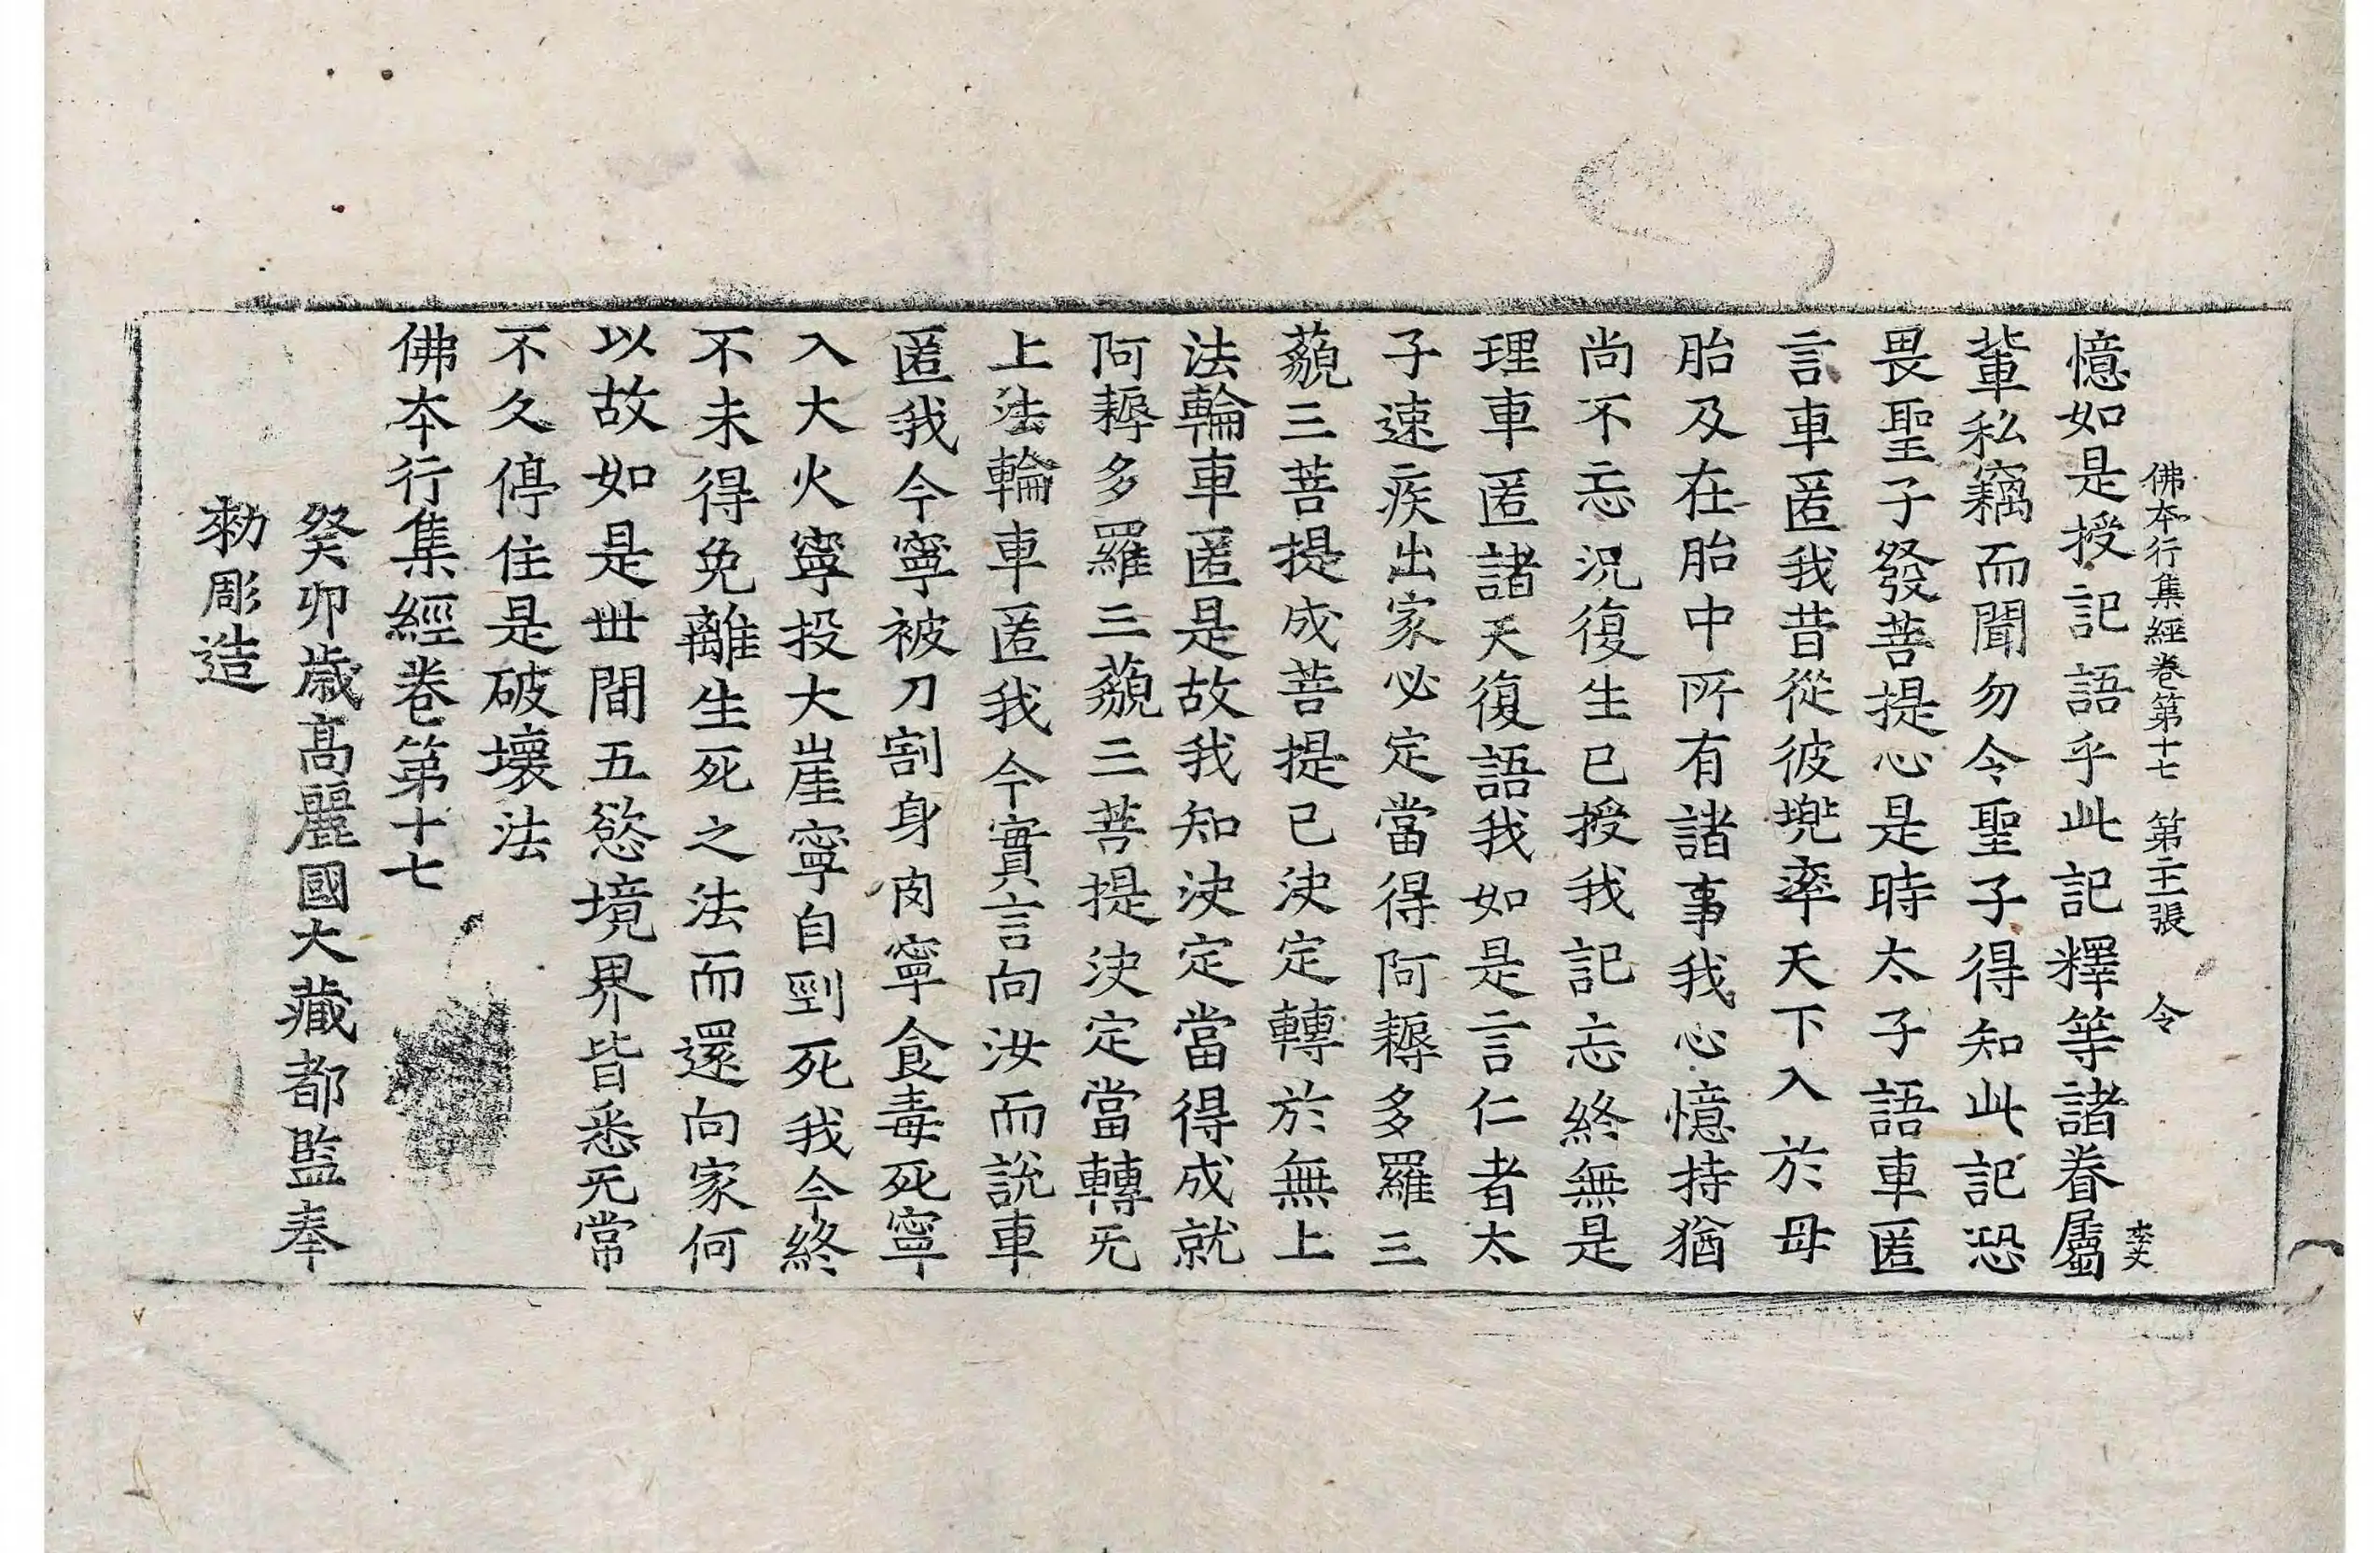 佛本行集經卷第十七 第二十三張 令
憶如是授記語乎此記釋等諸眷屬
輩私竊而聞勿令聖子得知此記恐
畏聖子發菩提心是時太子語車匿
言車匿我昔從彼兜率天下入於母
胎及在胎中所有諸事我心憶持猶
尚不忘況復生已授我記忘終無是
理車匿諸天復語我如是言仁者太
子速疾出家必定當得阿耨多羅三
藐三菩提成菩提已決定轉於無上
法輪車匿是故我知決定當得成就
阿耨多羅三藐三菩提決定當轉无
上法輪車匿我今實言向汝而說車
匿我今寧被刀割身肉寧食毒死寧
入大火寧投大崖寧自剄死我今終
不未得免離生死之法而還向家何
以故如是世間五慾境界皆悉无常
不久停住是破壞法
佛本行集經卷第十七
癸卯歲高麗國大藏都監奉
勅彫造